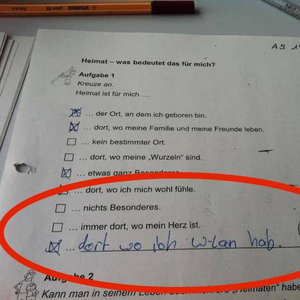 A3
Heimat – was bedeutet das für mich?
Aufgabe 1
Kreuze an.
Heimat ist für mich ...
... der Ort, an dem ich geboren bin.
... dort, wo meine Familie und meine Freunde leben.
... kein bestimmter Ort.
... dort, wo meine „Wurzeln" sind.
... etwas ganz Besonderes.
... dort, wo ich mich wohl fühle.
... nichts Besonderes.
... immer dort, wo mein Herz ist.
... dort wo ich w-lan hab.
Aufgabe 2
Kann man in seinem Leben